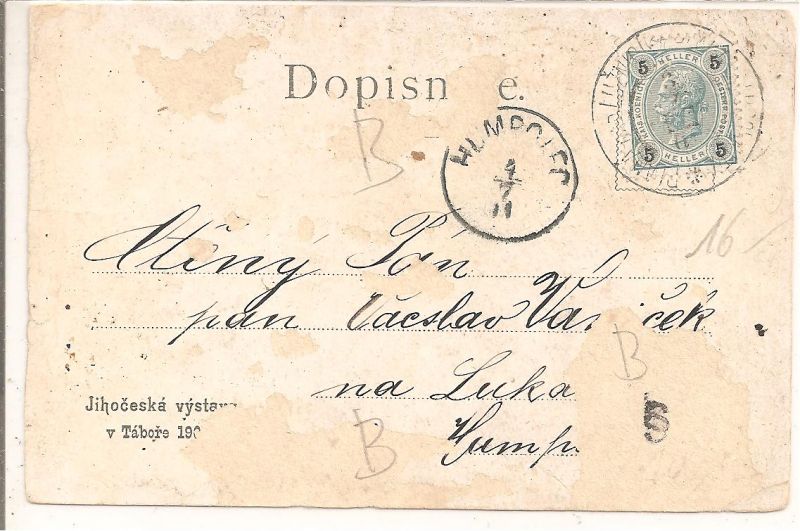 Dopisn e.
5 HELLER 5
5 HELLER 5
HUMPOLEC
1
7
B
16
Ctěný Pán
pan Vácslav Va ček
na Luka
Hump
B
B
5
Jihočeská výstav
v Táboře 190